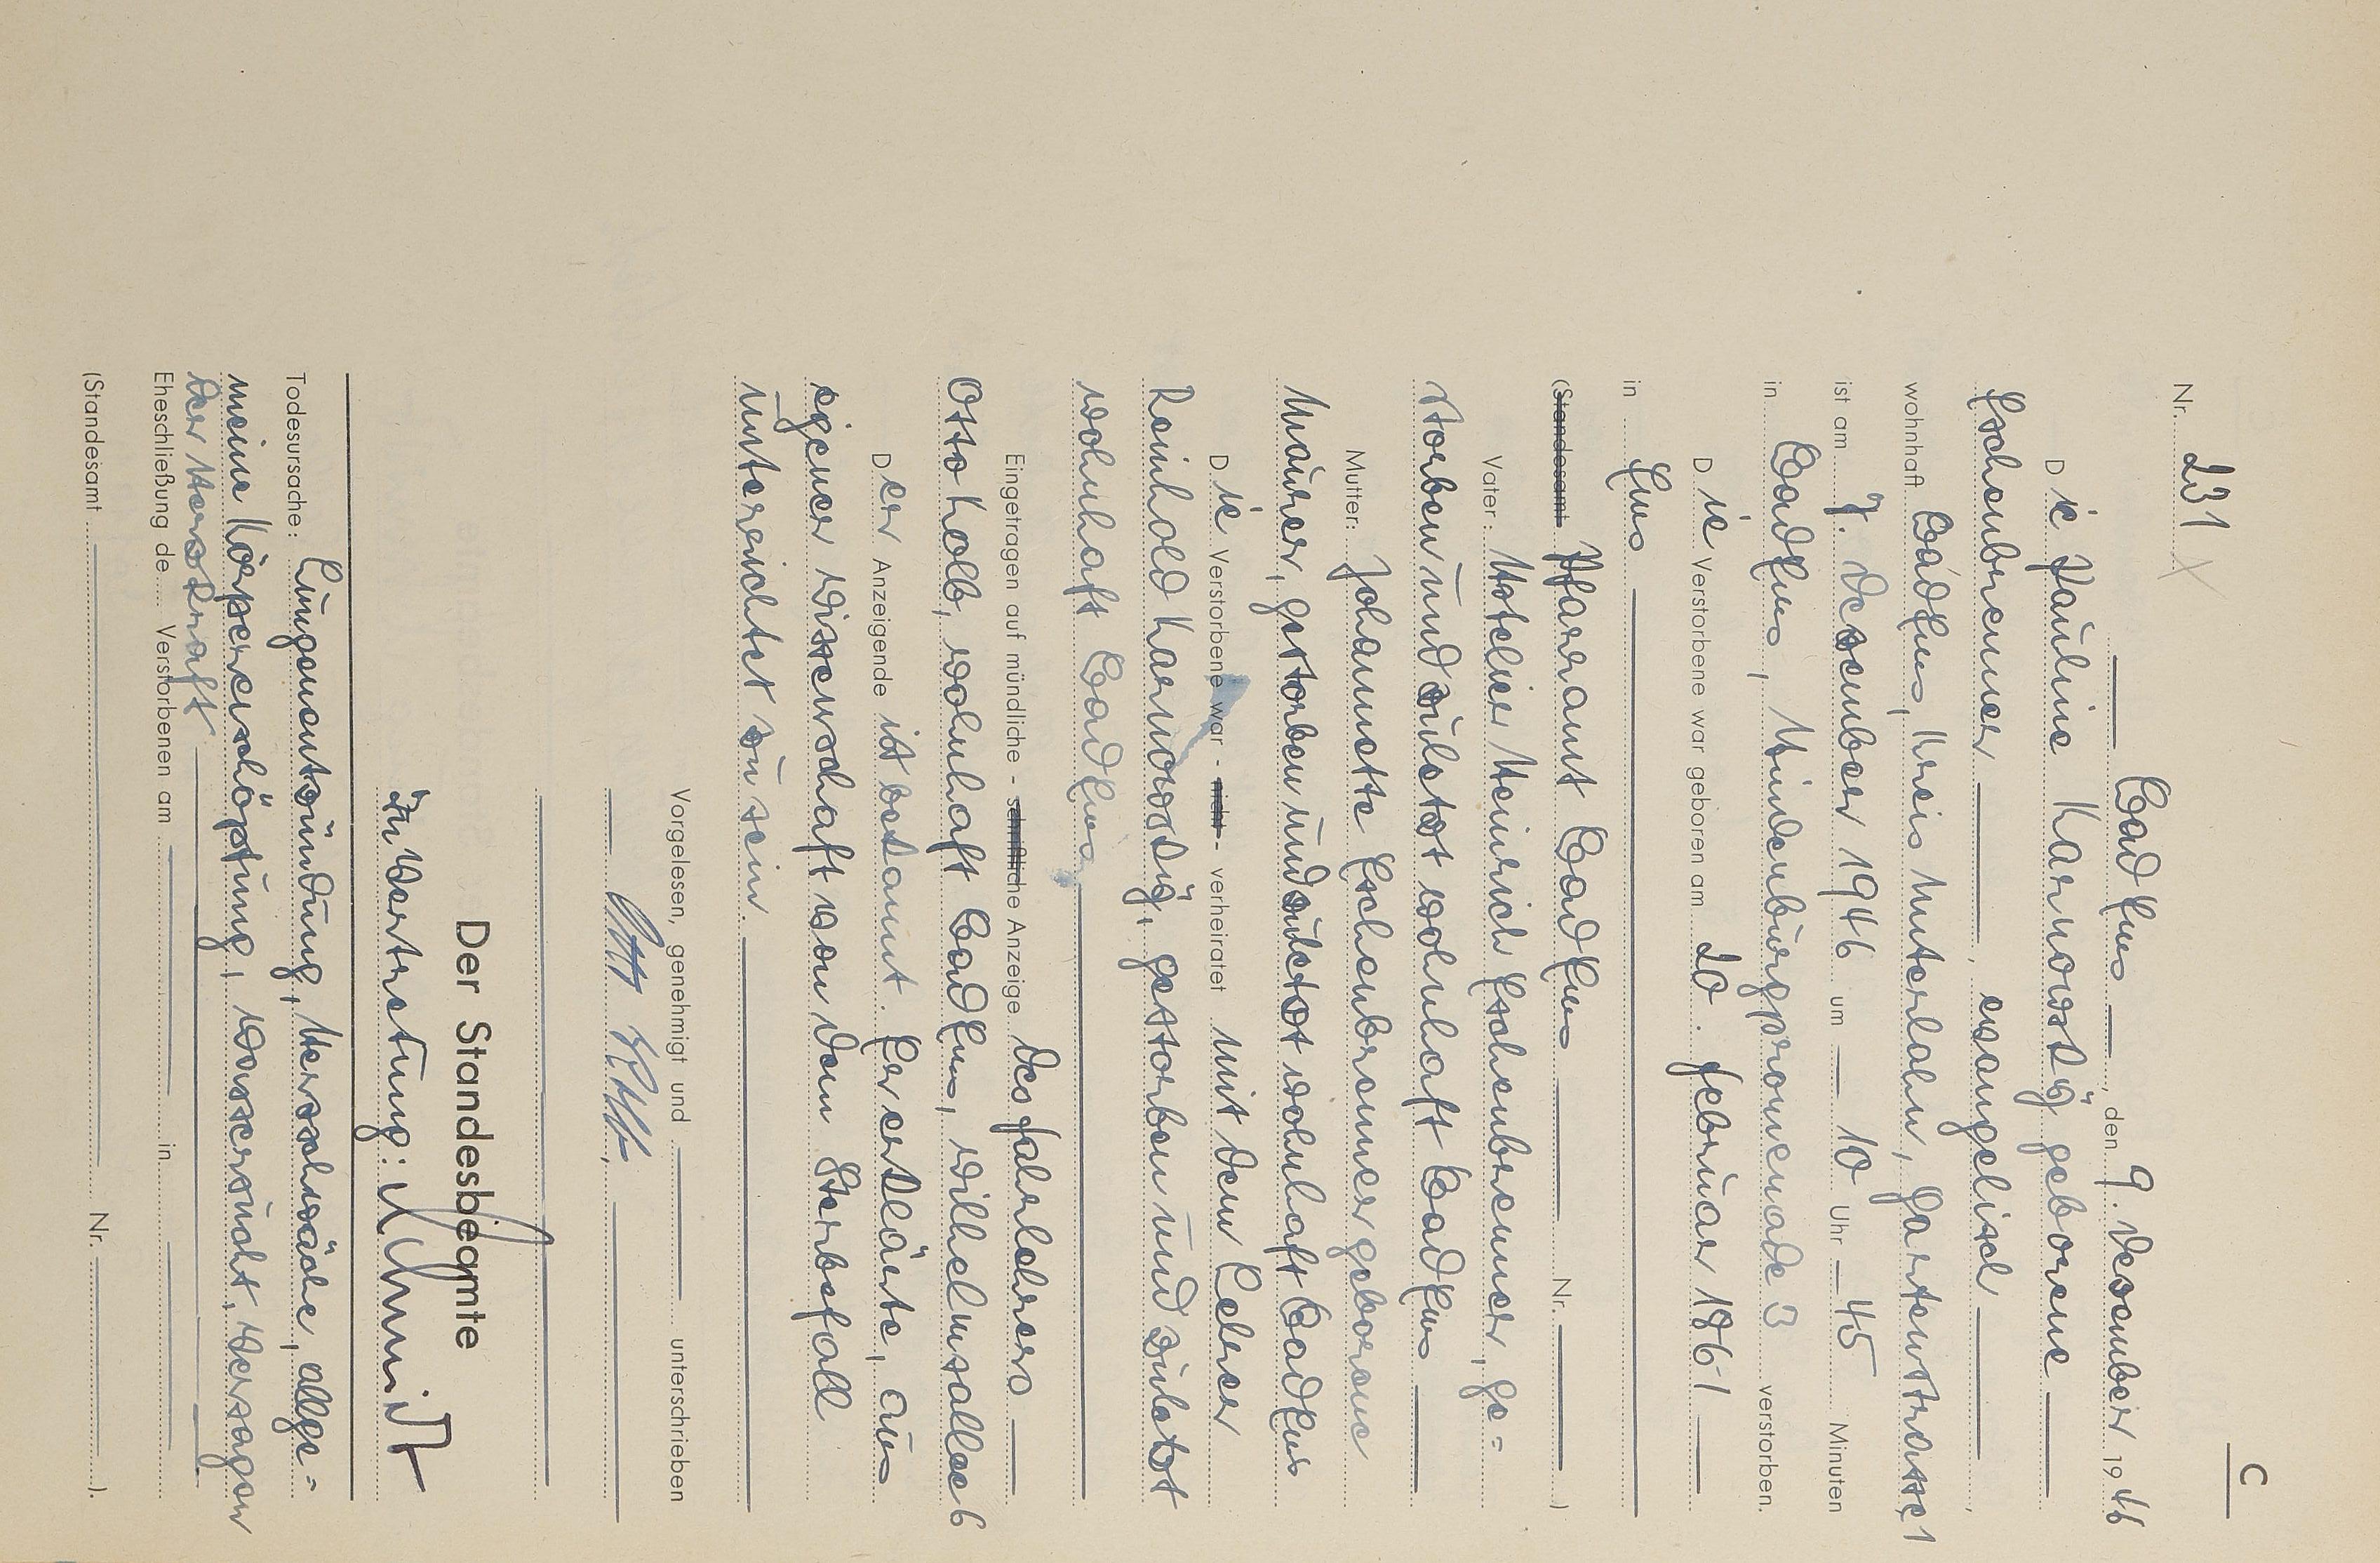 C
Nr. 231
Bad Ems, den 9. Dezember 1946
Die Pauline Karnowsky geborene
Eschenbrenner, evangelisch,
wohnhaft Bad Ems, Kreis Unterlahn, Gartenstrasse 1
ist am 7. Dezember 1946 um 10 Uhr 45 Minuten
in Bad Ems, Hindenburgpromenade 3 verstorben.
Die Verstorbene war geboren am 20. Februar 1861
in Ems
(Standesamt Pfarramt Bad Ems Nr. )
Vater: Hotelier Heinrich Eschenbrenner, ge=
storben und zuletzt wohnhaft Bad Ems
Mutter: Johannette Eschenbrenner geborene
Maurer, gestorben und zuletzt wohnhaft Bad Ems
Die Verstorbene war - nicht - verheiratet mit dem Lehrer
Reinhold Karnowsky, gestorben und zuletzt
wohnhaft Bad Ems
Eingetragen auf mündliche - schriftliche Anzeige des Fahrlehrers
Otto Kolb, wohnhaft Bad Ems, Wilhelmsallee 6
Der Anzeigende ist bekannt. Er erklärte, aus
eigener Wissenschaft von dem Sterbefall
unterrichtet zu sein.
Vorgelesen, genehmigt und unterschrieben
Otto Kolb.
Der Standesbeamte
In Vertretung: Schmidt
Todesursache: Lungenentzündung, Herzschwäche, allge=
meine Körpererschöpfung, Wassersucht, Versagen
der Herzkraft
Eheschließung de Verstorbenen am in
(Standesamt Nr. ).